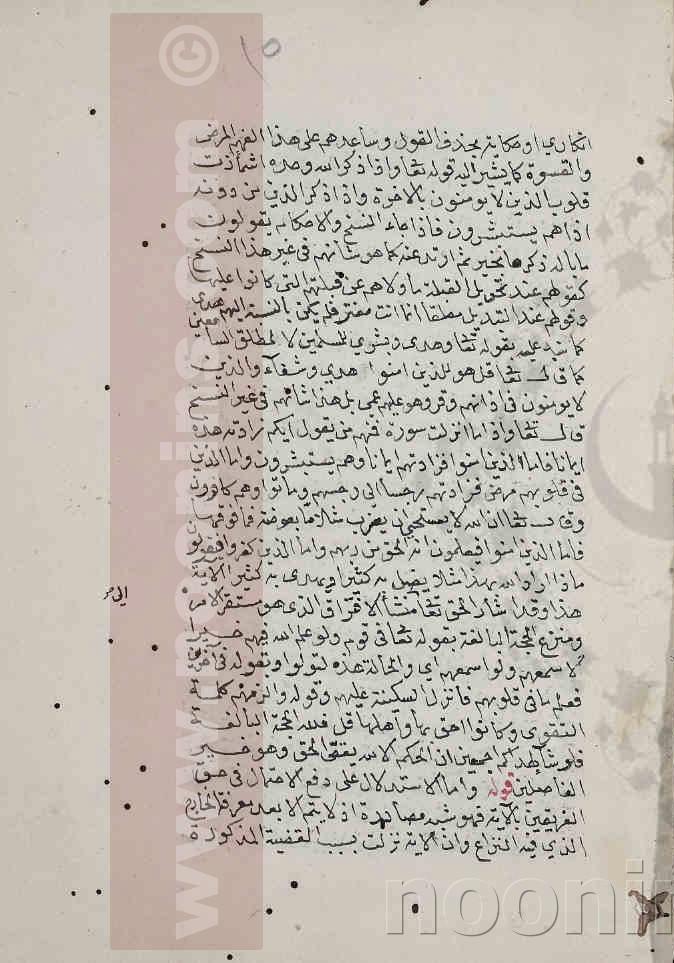 ١٥
انكاري او حكاية بحذف القول وساعدهم على هذا الفهم المرض
والقسوة كما يشير اليه قوله تعا واذا ذكر الله وحده اشمأزت
قلوب الذين لا يومنون بالاخرة واذا ذكر الذين من دونه
اذا هم يستبشرون فاذا جاء النسخ والاحكام يقولون
ما باله ذكر ما نخير ثم ارتد عنه كما هو شانهم في غير هذا النسخ
كقولهم عند تحويل القبلة ما ولاهم عن قبلتهم التي كانوا عليها
وقولهم عند التبديل مطلقا انما انت مفتر فلم يكن بالنسبة اليهم هدى
كما نبه عليه بقوله تعا وهدى وبشرى للمسلمين لا لمطلق السامعين
كما قال تعا قل هو للذين امنوا هدى وشفآء والذين
لا يومنون في اذانهم وقر وهو عليهم عمى بل هذا شانهم في غير النسخ
قال تعا واذا ما انزلت سورة فمنهم من يقول ايكم زادته هذه
ايمانا فاما الذين امنوا فزادتهم ايمانا وهم يستبشرون واما الذين
في قلوبهم مرض فزادتهم رجسا الى رجسهم وماتوا وهم كافرون
وقال تعا ان الله لا يستحيي ان يضرب مثلا ما بعوضة فما فوقها
فاما الذين امنوا فيعلمون انه الحق من ربهم واما الذين كفروا فيقولون
ماذا اراد الله بهذا مثلا يضل به كثيرا ويهدى به كثيرا الاية
هذا وقد اشار الحق تعا منشأ الافتراق الذى هو مستقر الامر
الى
ومنزع الحجة البالغة بقوله تعا في قوم ولو علم الله فيهم خيرا
لاسمعهم ولو اسمعهم اي والحالة هذه لتولوا وبقوله في اخرين
فعلم ما في قلوبهم فانزل السكينة عليهم وقوله والزمهم كلمة
التقوى وكانوا احق بها واهلها قل فلله الحجة البالغة
فلو شآء لهداكم اجمعين ان الحكم الا لله يقص الحق وهو خير
الفاصلين قوله واما الاستدلال على دفع الاحتمال في حق
الفريقين بالاية فهو شبه مصادرة اذ لا يتم الا بعد معرفة الخارج
الذي فيه النزاع وان الاية نزلت بسبب القضية المذكورة
www.noonins.com ©
noonin